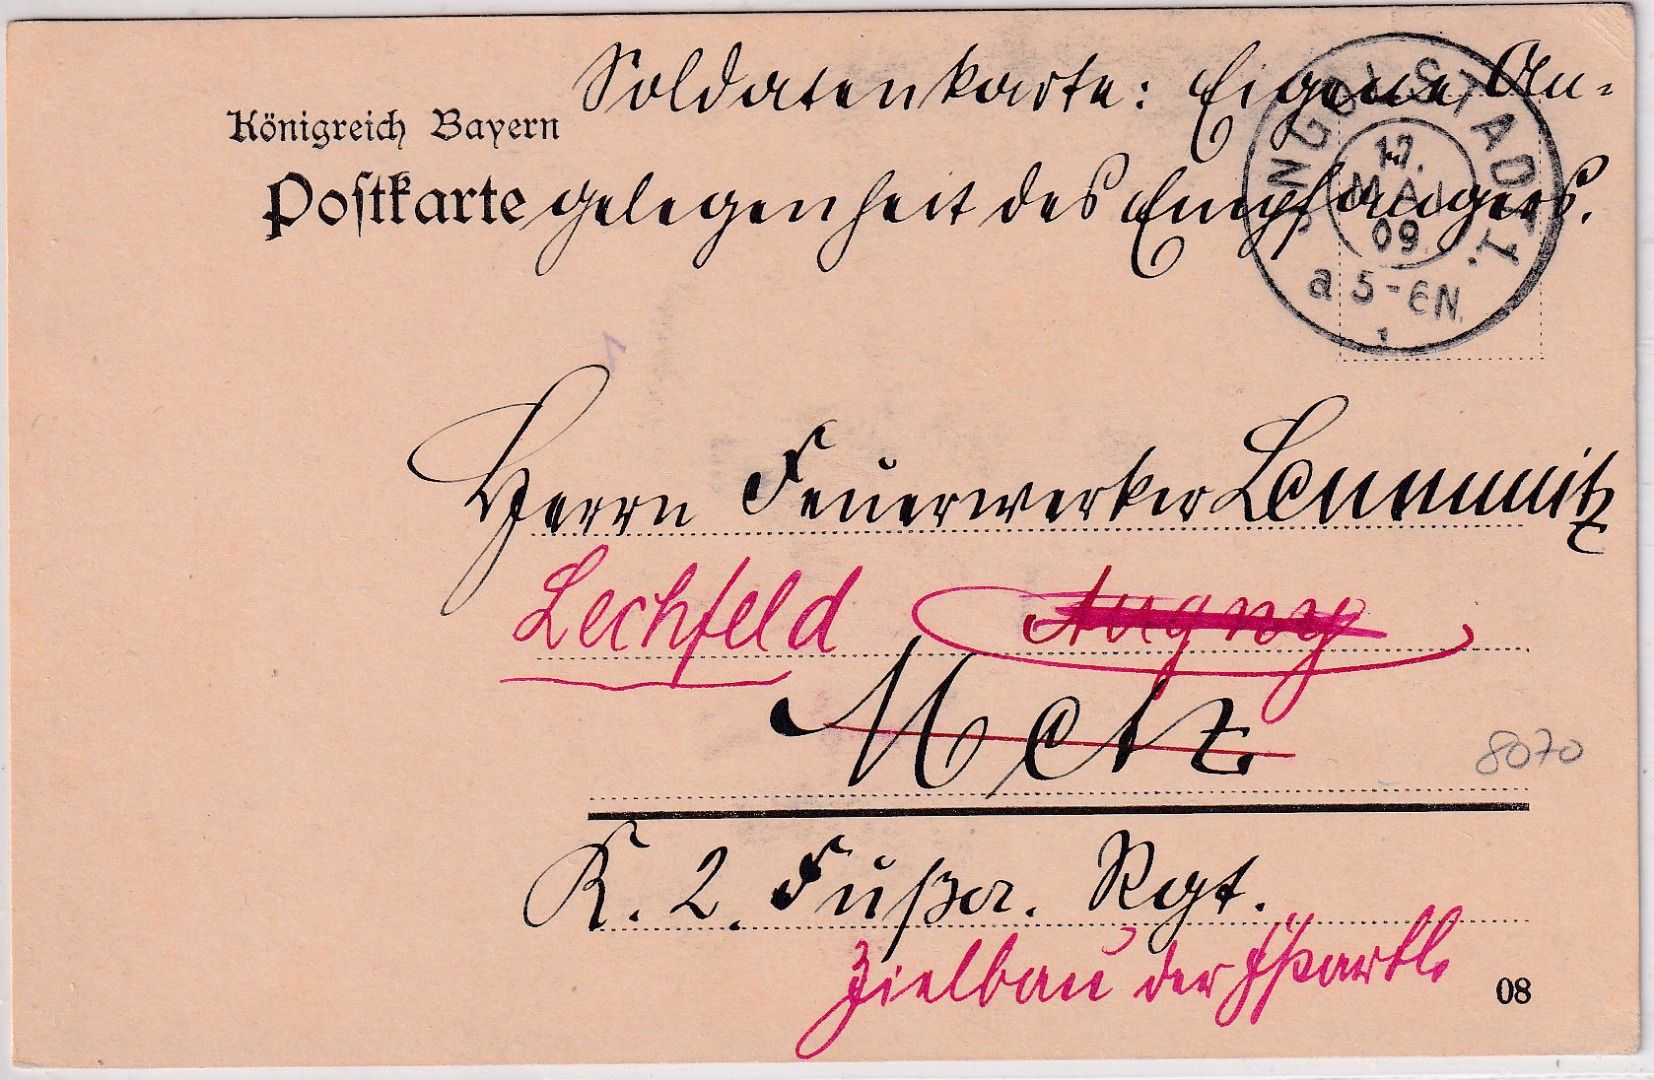 Soldatenkarte: Eigene An=
Königreich Bayern
Postkarte
gelegenheit des Empfängers.
INGOLSTADT I.
17.
MAI
09
a 5-6N.
1
Herrn Feuerwerker
Lechfeld Augny
Metz
8070
K. 2. Fußa. Rgt.
Zielbau der
08